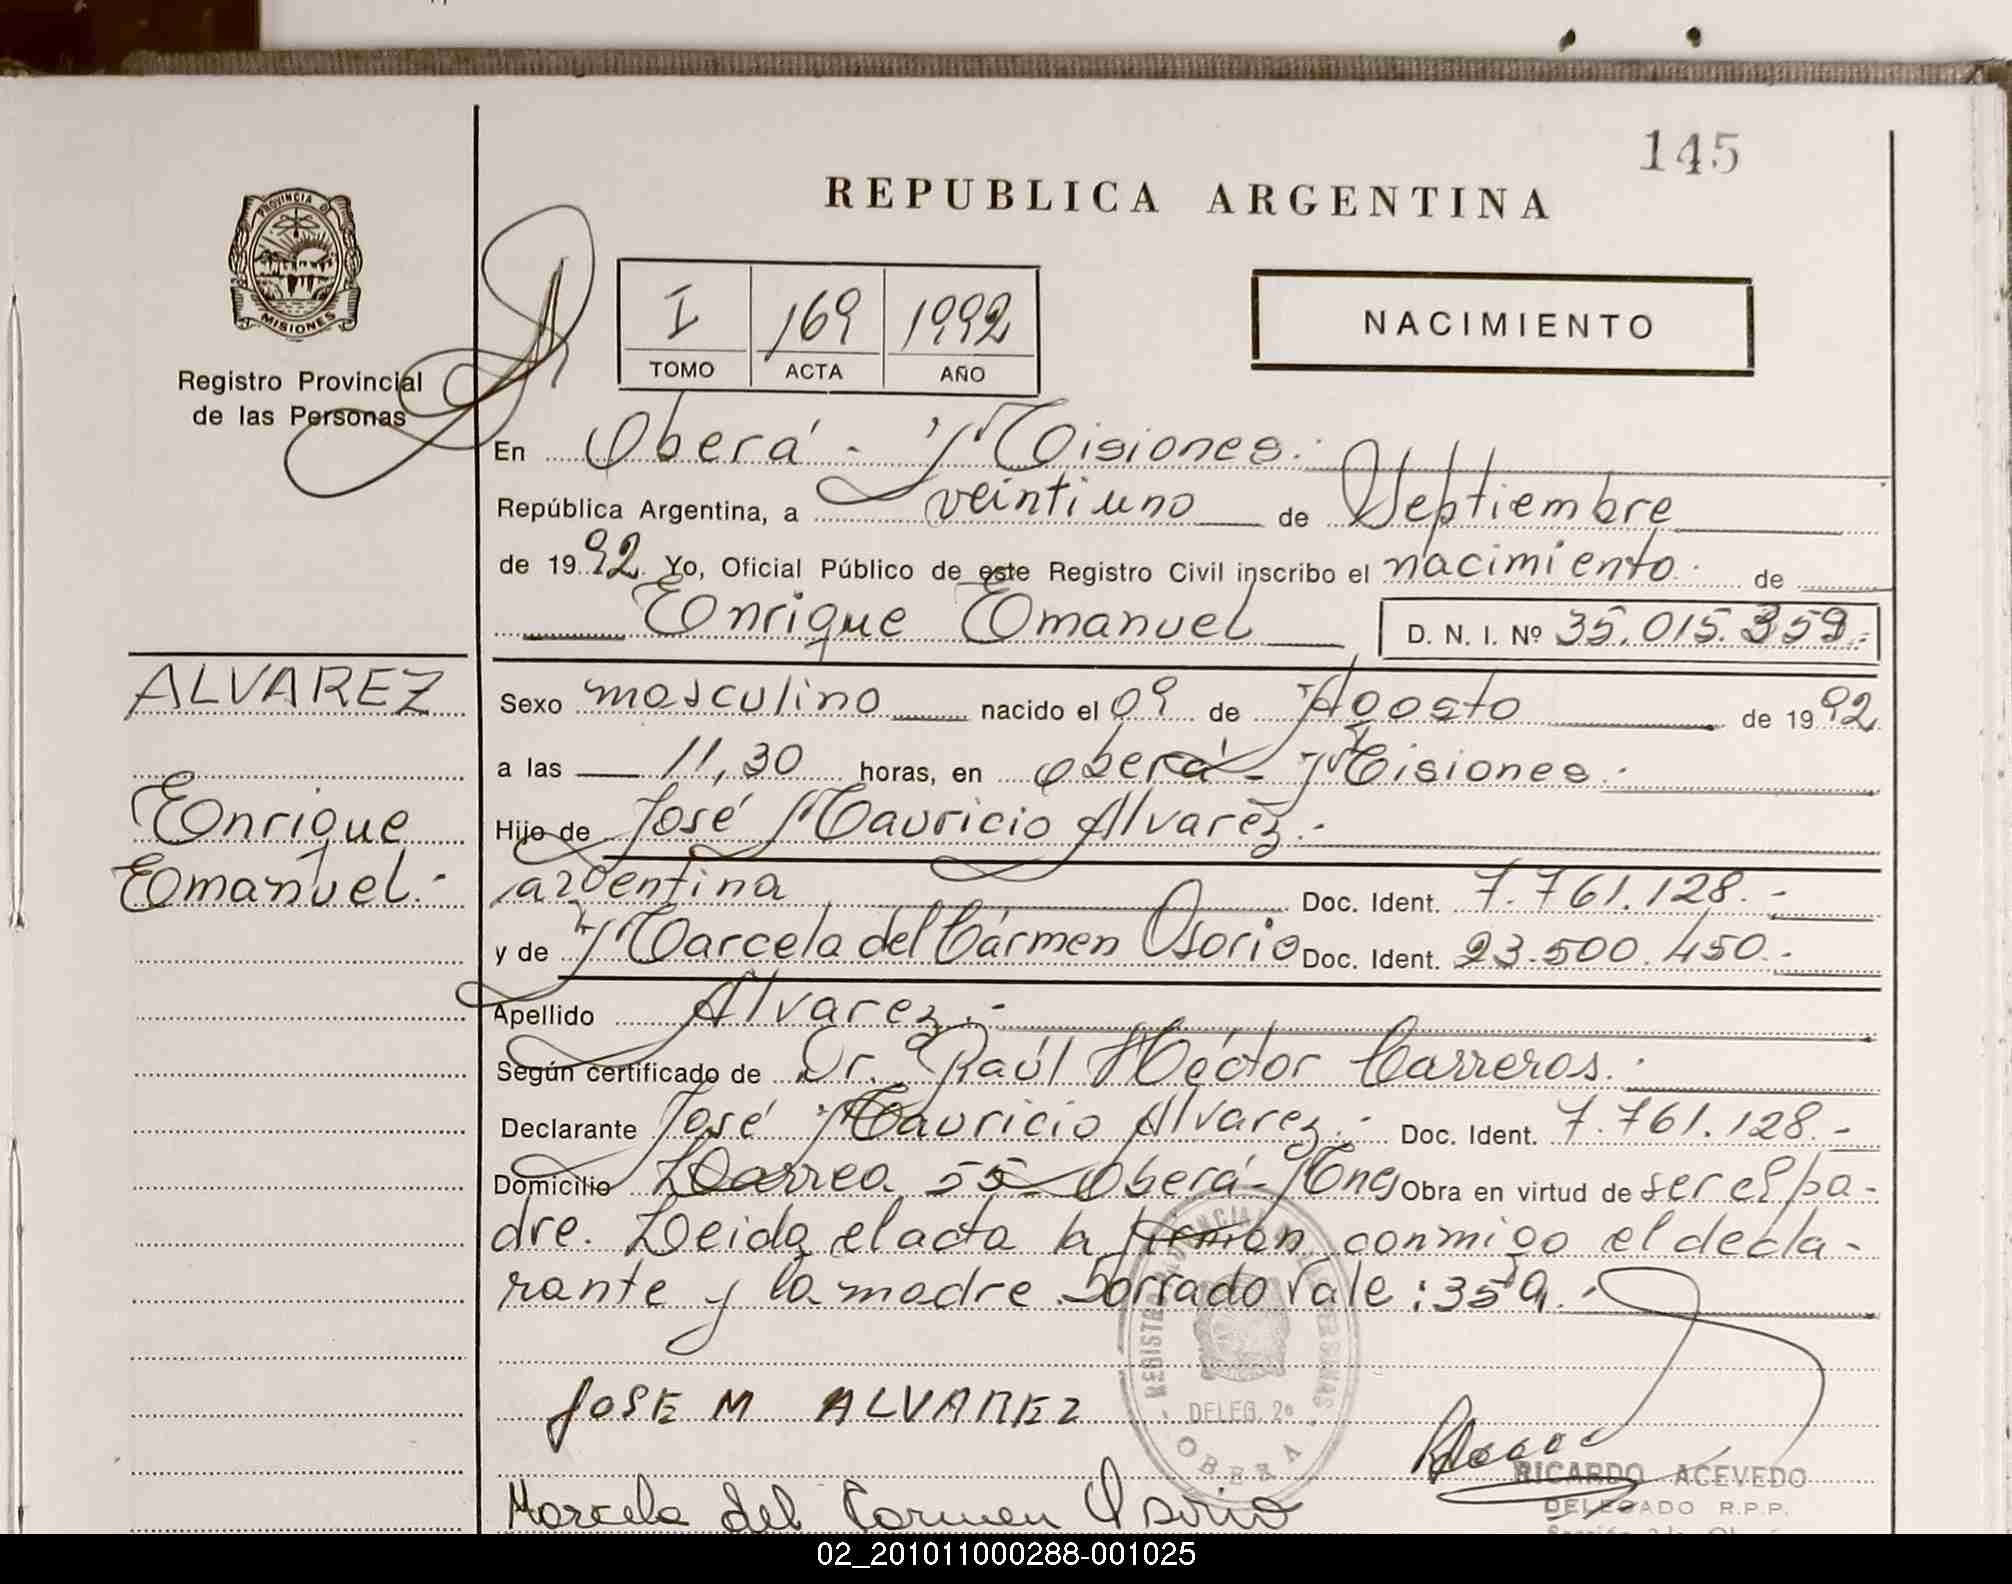 145
REPUBLICA ARGENTINA
PROVINCIA DE MISIONES
Registro Provincial
de las Personas
I 169 1992
TOMO ACTA AÑO
NACIMIENTO
En Oberá - Misiones.-
República Argentina, a veintiuno de Septiembre
de 1992. Yo, Oficial Público de este Registro Civil inscribo el nacimiento de
Enrique Emanuel D. N. I. Nº 35.015.359.-
ALVAREZ
Enrique
Emanuel.-
Sexo masculino nacido el 09 de Agosto de 1992.
a las 11,30 horas, en Oberá - Misiones.-
Hijo de José Mauricio Alvarez.-
argentina Doc. Ident. 7.761.128.-
y de Marcela del Cármen Osorio Doc. Ident. 23.500.450.-
Apellido Alvarez.-
Según certificado de Dr. Raúl Héctor Carreros.-
Declarante José Mauricio Alvarez.- Doc. Ident. 7.761.128.-
Domicilio Larrea 55 - Oberá - Mnes Obra en virtud de ser el pa-
dre. Leida el acta la firman conmigo el decla-
rante y la madre. Borrado Vale: 359.-
JOSE M ALVAREZ
DELEG. 2ª
OBERA
Marcela del Carmen Osorio
RICARDO ACEVEDO
DELEGADO R.P.P.
02_201011000288-001025